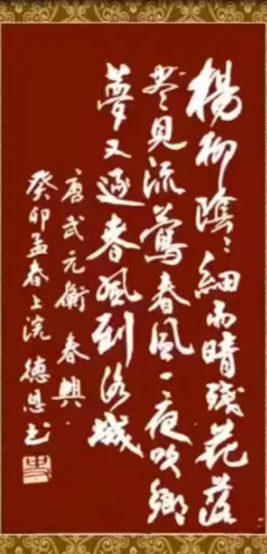 楊柳陰〻細雨晴殘花落
盡見流鶯春風一夜吹鄉
夢又逐春風到洛城
唐武元衡春興
癸卯孟春上浣德恩书